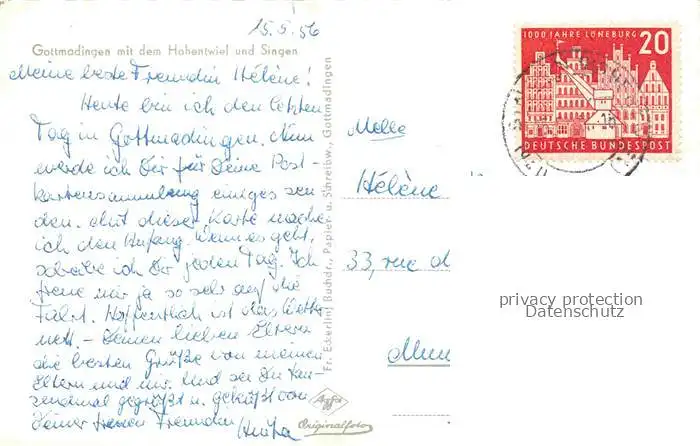 15.5.56
Gottmadingen mit dem Hohentwiel und Singen
Meine beste Freundin Hélène!
Heute bin ich den letzten
Tag in Gottmadingen. Nun
werde ich Dir für Deine Post-
kartensammlung einiges sen
den. Mit dieser Karte mache
ich den Anfang. Wenn es geht,
schreibe ich Dir jeden Tag. Ich
freue mir ja so sehr auf die
Fahrt. Hoffentlich ist das Wetter
nett. - Deinen lieben Eltern
die besten Grüße von meinen
Eltern und mir. Und sei Du tau-
sendmal gegrüßt u. geküßt von
Deiner treuen Freundin
Fr. Eckerlin, Buchdr., Papier- u. Schreibw., Gottmadingen
Agfa
Originalfoto
1000 JAHRE LÜNEBURG 20
DEUTSCHE BUNDESPOST
Melle
Hélène
33, rue d
privacy protection
Datenschutz